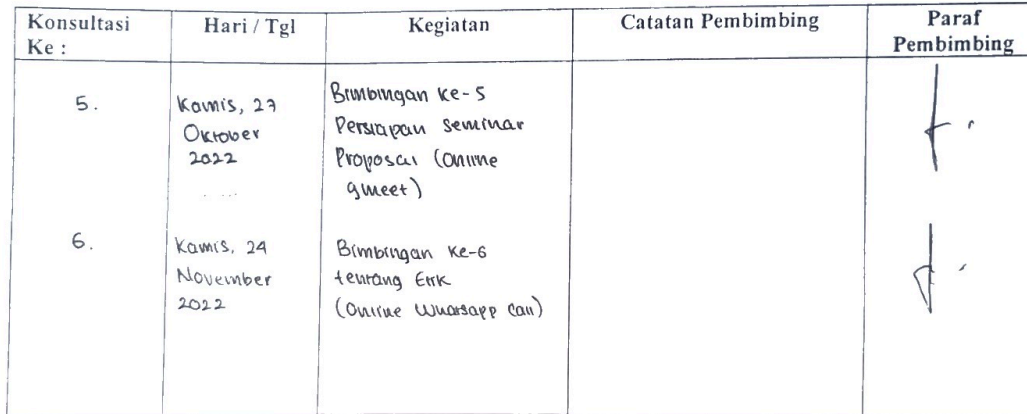 Konsultasi Ke :
Hari / Tgl
Kegiatan
Catatan Pembimbing
Paraf Pembimbing
5.
Kamis, 27
Oktober
2022
Bimbingan ke-5
Persiapan seminar
Proposal (online
gmeet)
6.
Kamis, 24
November
2022
Bimbingan ke-6
tentang Etik
(online Whatsapp call)